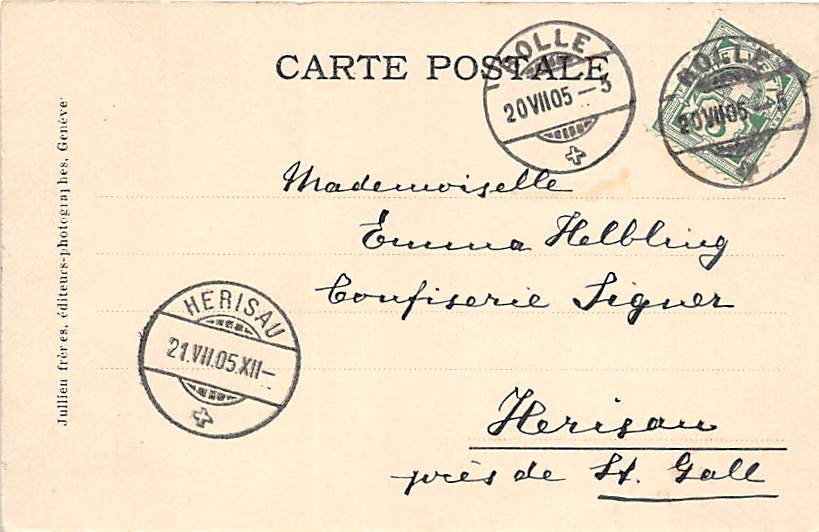 CARTE POSTALE
ROLLE
20 VII 05 – 5
ROLLE
20 VII 05 – 5
HELVETIA
5
Mademoiselle
Emma Helbling
Confiserie Signer
HERISAU
21.VII.05.XII–
Herisau
près de St. Gall
Jullien frères, éditeurs-photographes, Genève